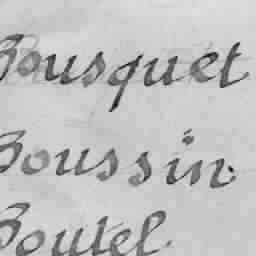 Bousquet
Boussin.
Boutel.